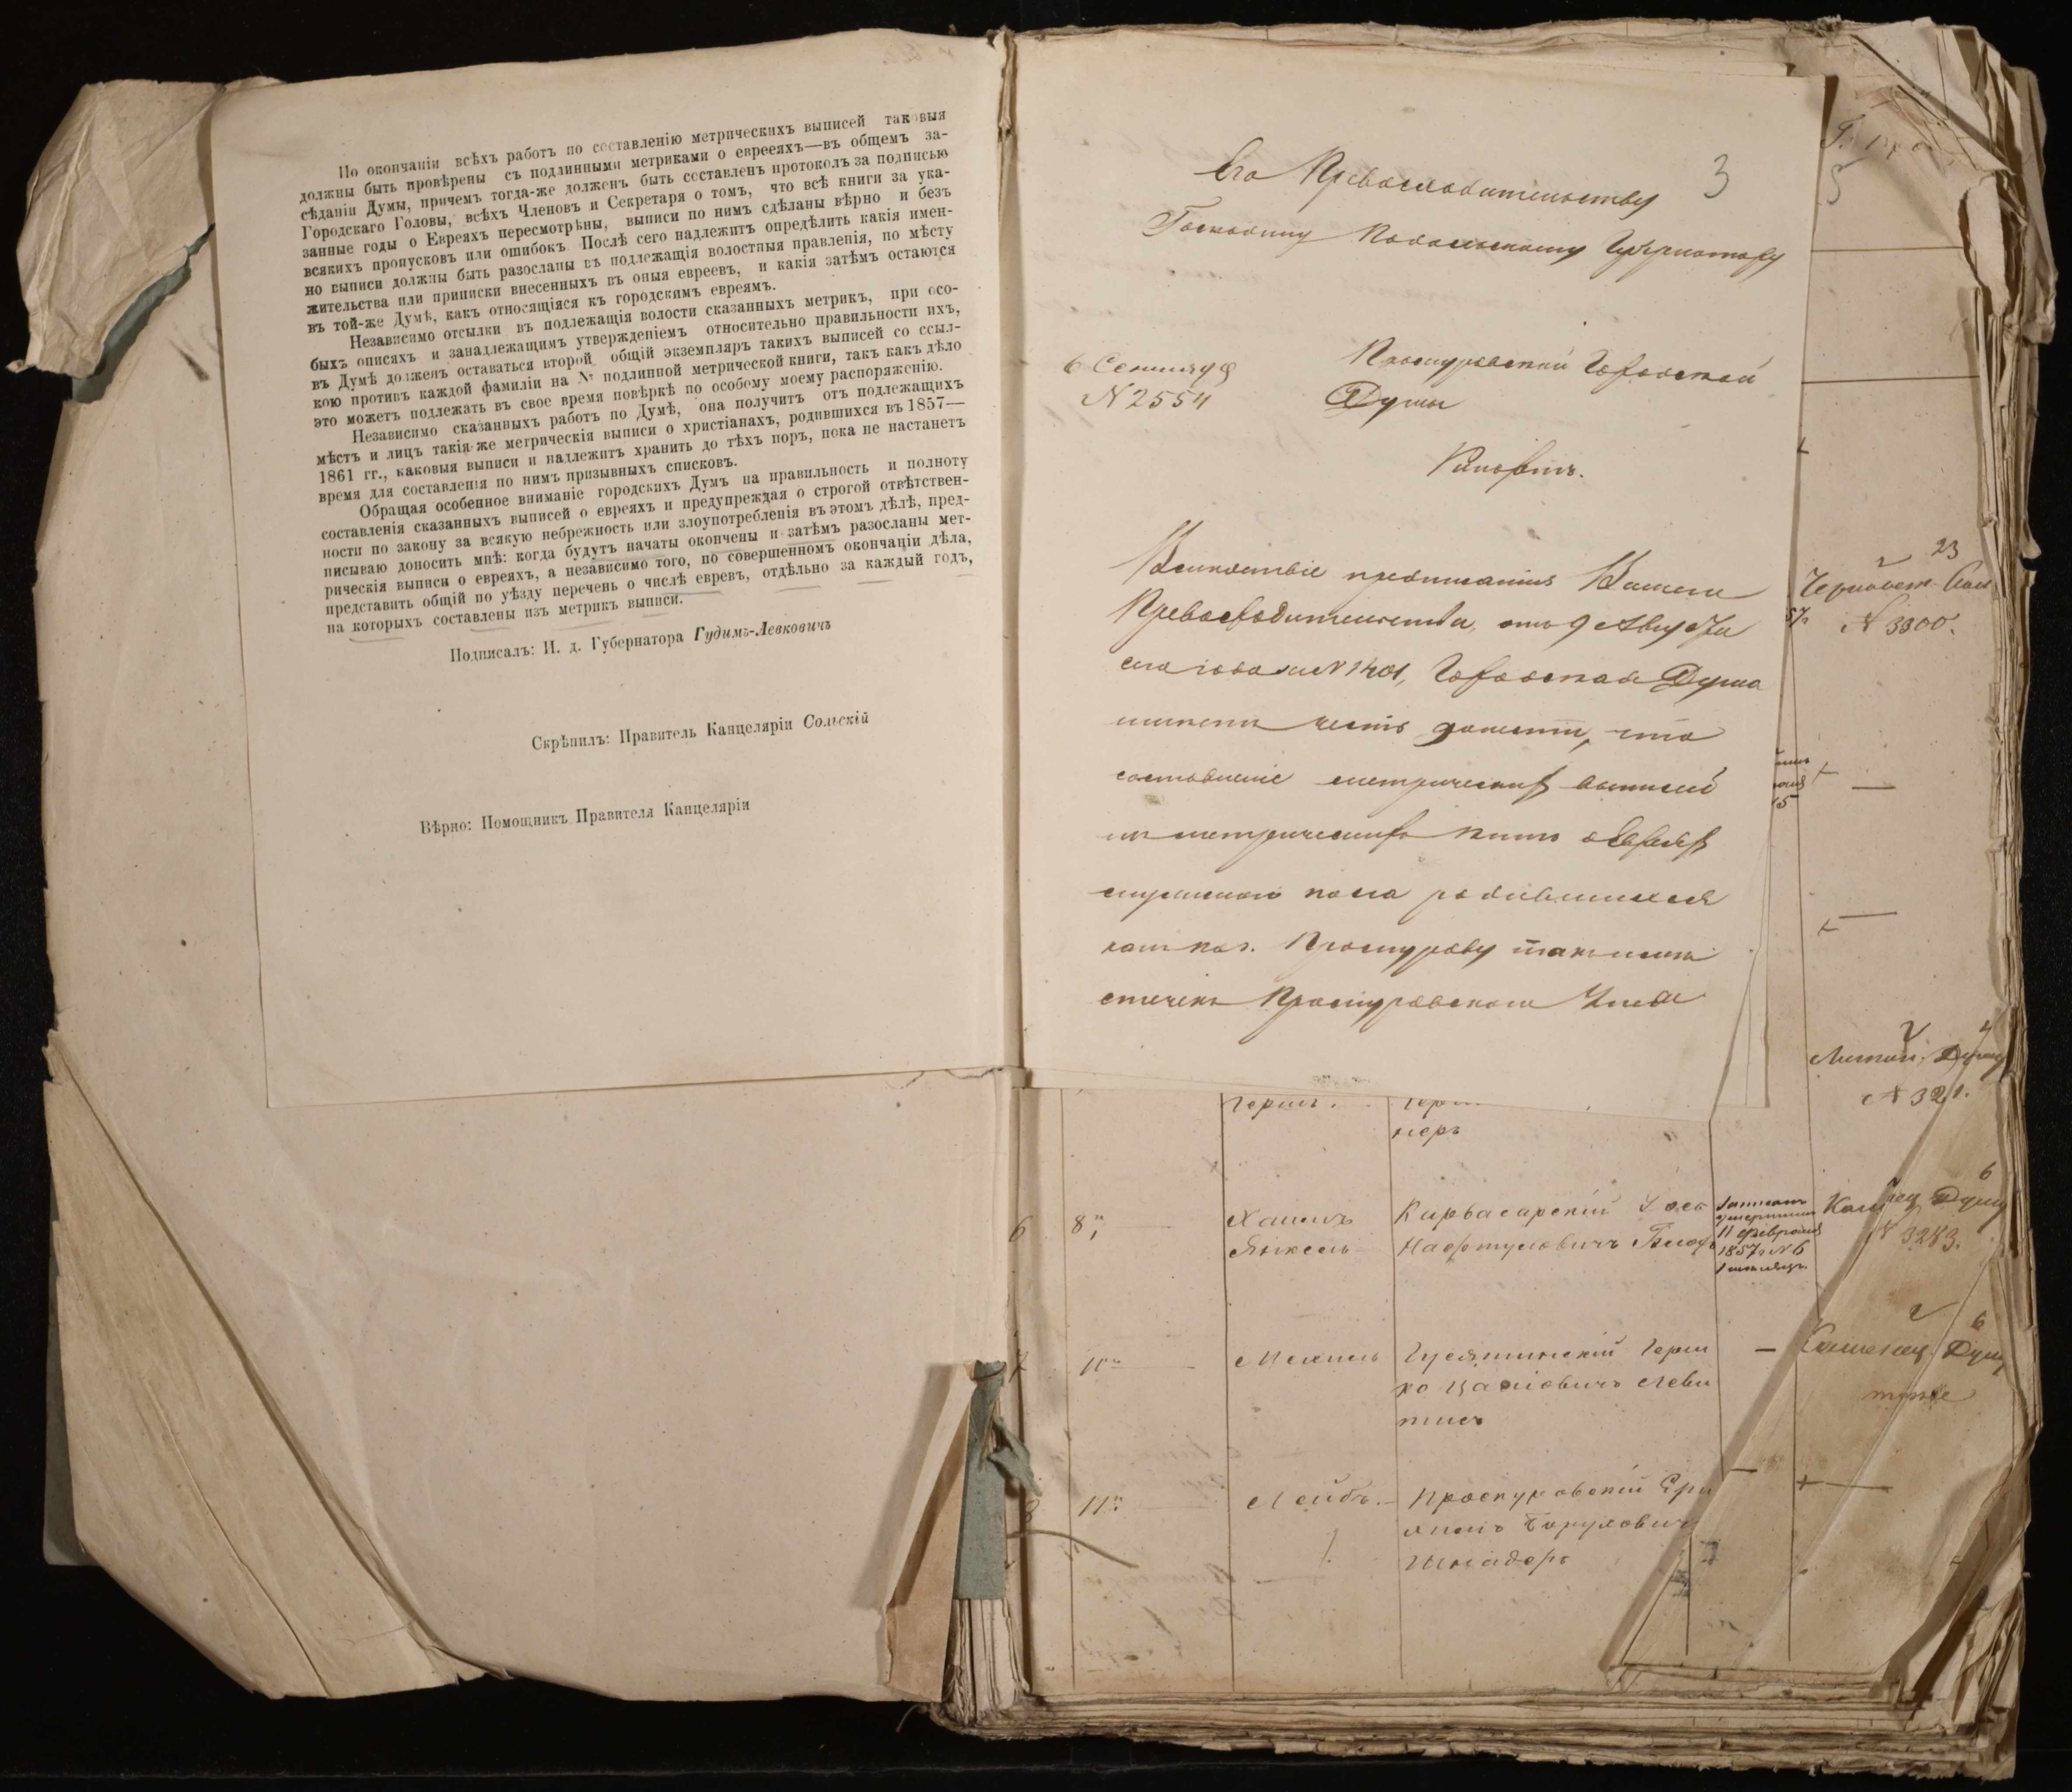 По окончаніи всѣхъ работъ по составленію метрическихъ выписей таковыя
должны быть провѣрены съ подлинными метриками о евреяхъ—въ общемъ за-
сѣданіи Думы, причемъ тогда-же долженъ быть составленъ протоколъ за подписью
Городскаго Головы, всѣхъ Членовъ и Секретаря о томъ, что всѣ книги за ука-
занные годы о Евреяхъ пересмотрѣны, выписи по нимъ сдѣланы вѣрно и безъ
всякихъ пропусковъ или ошибокъ. Послѣ сего надлежитъ опредѣлить какія имен-
но выписи должны быть разосланы въ подлежащія волостныя правленія, по мѣсту
жительства или приписки внесенныхъ въ оныя евреевъ, и какія затѣмъ остаются
въ той-же Думѣ, какъ относящіяся къ городскимъ евреямъ.
Независимо отсылки въ подлежащія волости сказанныхъ метрикъ, при осо-
быхъ описяхъ и занадлежащимъ утвержденіемъ относительно правильности ихъ,
въ Думѣ долженъ оставаться второй общій экземпляръ такихъ выписей со ссыл-
кою противъ каждой фамиліи на № подлинной метрической книги, такъ какъ дѣло
это можетъ подлежать въ свое время повѣркѣ по особому моему распоряженію.
Независимо сказанныхъ работъ по Думѣ, она получитъ отъ подлежащихъ
мѣстъ и лицъ такія же метрическія выписи о христіанахъ, родившихся въ 1857—
1861 гг., каковыя выписи и надлежитъ хранить до тѣхъ поръ, пока не настанетъ
время для составленія по нимъ призывныхъ списковъ.
Обращая особенное вниманіе городскихъ Думъ на правильность и полноту
составленія сказанныхъ выписей о евреяхъ и предупреждая о строгой отвѣтствен-
ности по закону за всякую небрежность или злоупотребленія въ этомъ дѣлѣ, пред-
писываю доносить мнѣ: когда будутъ начаты окончены и затѣмъ разосланы мет-
рическія выписи о евреяхъ, а независимо того, по совершенномъ окончаніи дѣла,
представить общій по уѣзду перечень о числѣ евревъ, отдѣльно за каждый годъ,
на которыхъ составлены изъ метрикъ выписи.
Подписалъ: И. д. Губернатора Гудимъ-Левковичъ
Скрѣпилъ: Правитель Канцеляріи Сольскій
Вѣрно: Помощникъ Правителя Канцеляріи
3
Его Превосходительству
Господину Подольскому Губернатору
6 Сентября
№ 2554
Проскуровской Городской
Думы
Рапортъ.
Вслѣдствіе предписанія Вашего
Превосходительства, отъ 9 Августа
сего года за № 1401, Городская Дума
имѣетъ честь донести, что
составленіе метрическихъ выписей
изъ метрическихъ книгъ о Евреяхъ
мужескаго пола родившихся
какъ по г. Проскурову такъ и мѣ
стечекъ Проскуровскаго Уѣзда
5
23
№ 3300.
Летич. Думу
№ 321.
Герш.
неръ
6 8" Хаимъ Карвасарскій Іось
Янкель Нафтуловичъ
11 февраля
1857 г № 6
Камянец Думу
№ 3283.
7 10" Мехель Гусятинскій Герш
ко Левы
6
Каменец. Думу
тоже
8 11" Лейбъ. Проскуровскій Сру
Борухович
Шнадеръ